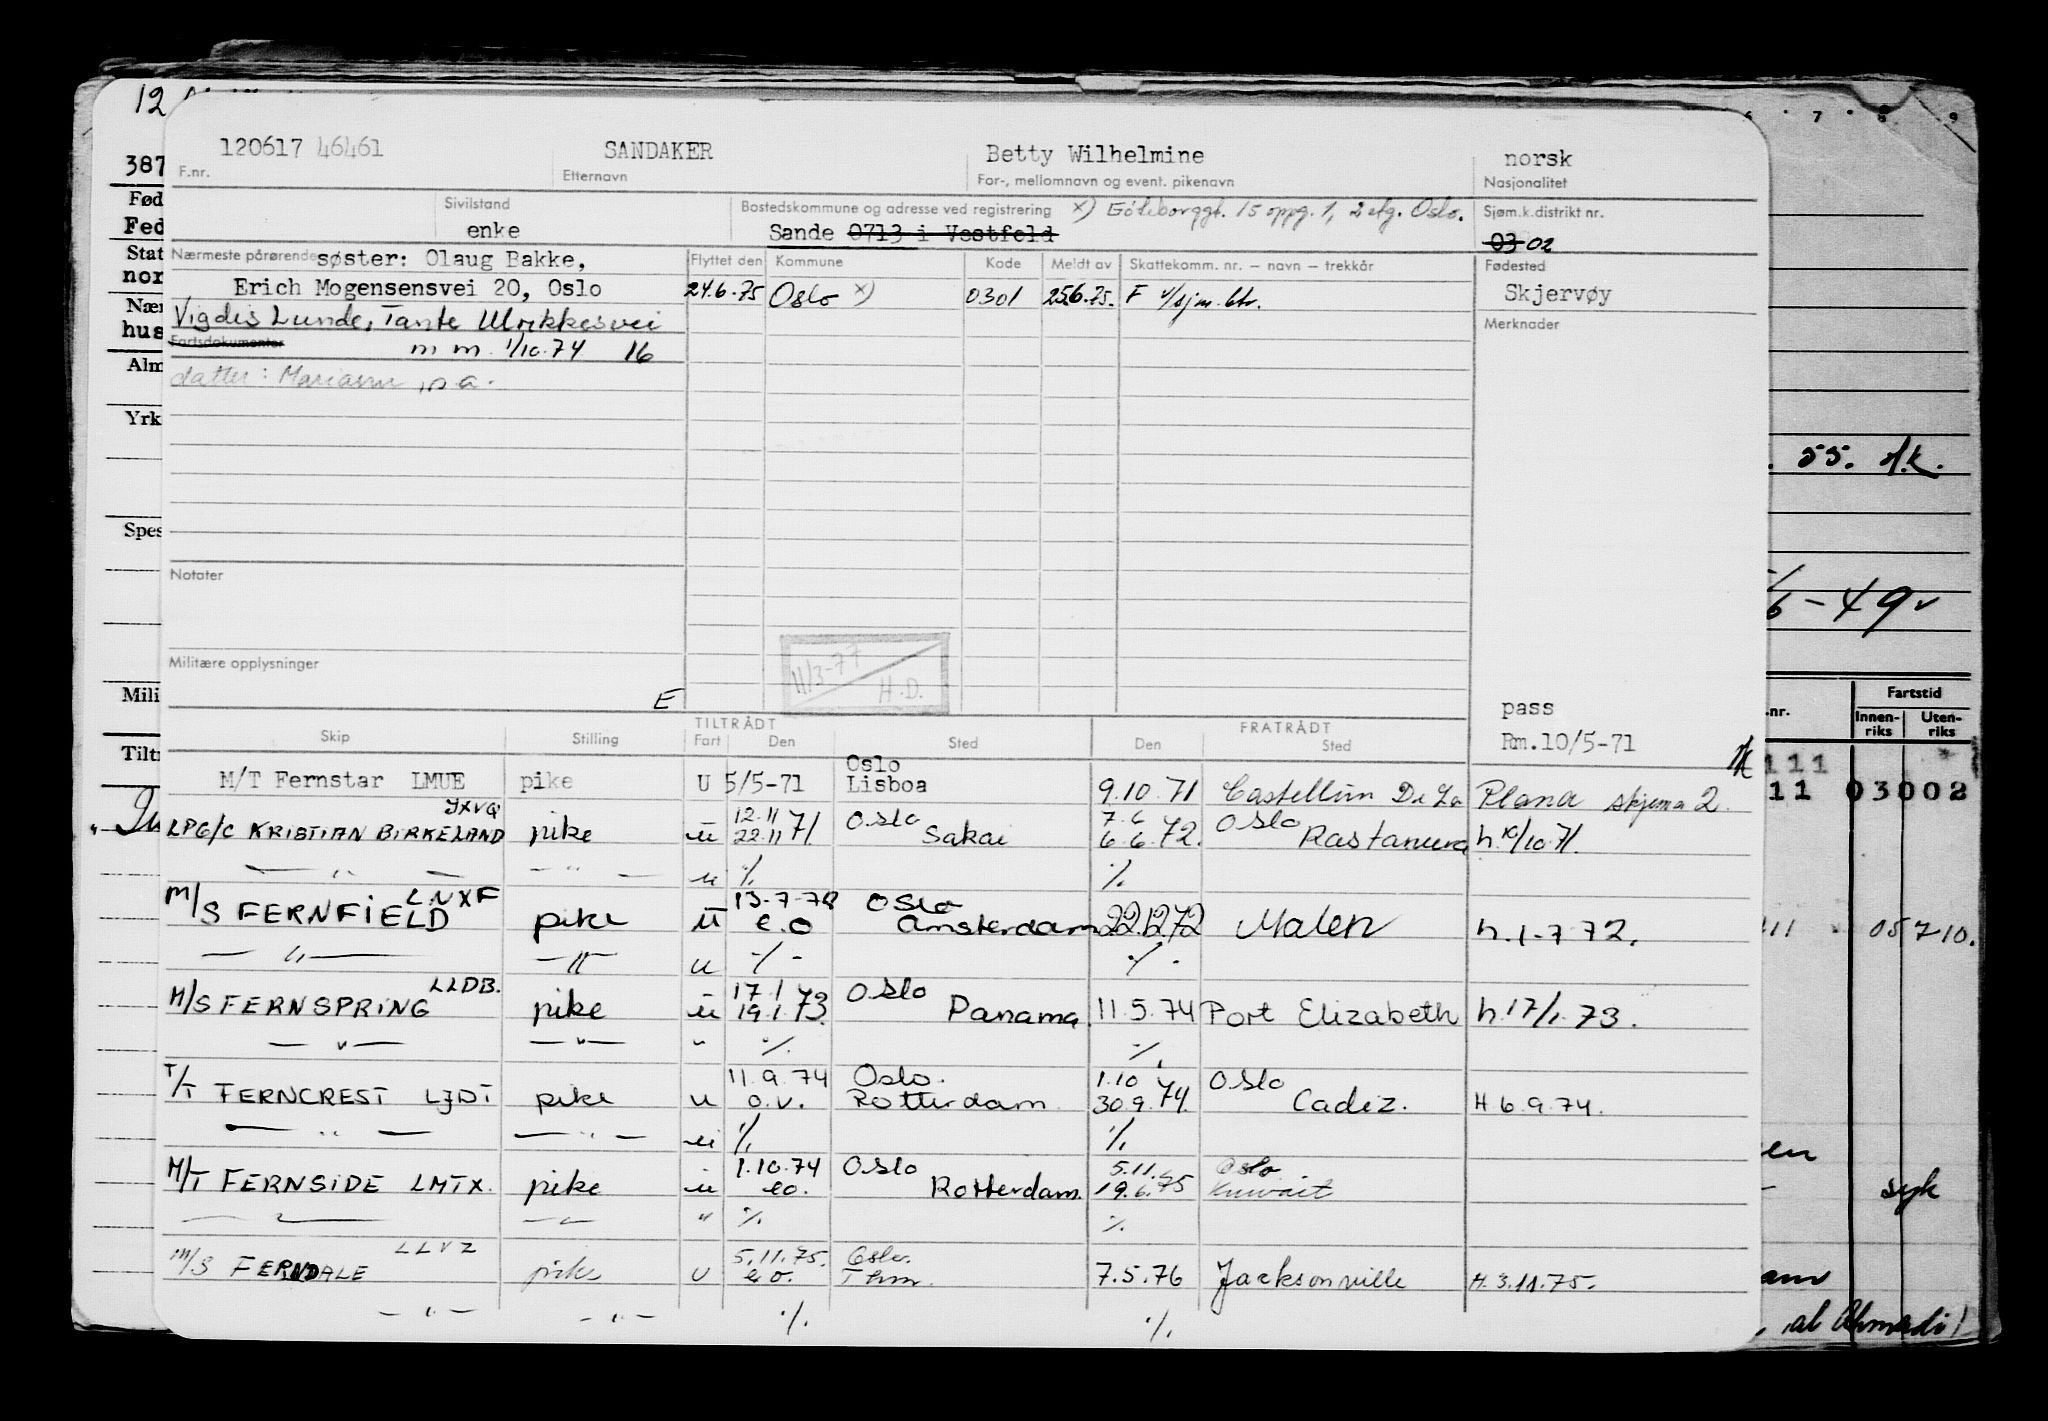 12
120617 46461 SANDAKER Betty Wilhelmine norsk
F.nr. Etternavn For-, mellomnavn og event. pikenavn Nasjonalitet
Sivilstand Bostedskommune og adresse ved registrering x) Göteborggt. 15 oppg. 1, 2 etg. Oslo. Sjøm.k.distrikt nr.
enke Sande 0713 i Vestfold 03 02
Nærmeste pårørende søster: Olaug Bakke, Flyttet den Kommune Kode Meldt av Skattekomm. nr. – navn – trekkår Fødested
Erich Mogensensvei 20, Oslo 24.6.75 Oslo x) 0301 25.6.75. F Skjervøy
Vigdis Lunde, Tante Ulrikkesvei Merknader
Fartsdokumenter m m. 1/10.74 16
datter: Mariann
Notater
11/3-77
H.D.
Militære opplysninger
E
pass
TILTRÅDT FRATRÅDT
Skip Stilling Fart Den Sted Den Sted Rm.10/5-71
Oslo
M/T Fernstar LMUE pike U 5/5-71 Lisboa 9.10.71 Castellon De La Plana skjema 2.
JXVQ 12.11 Oslo 7.6 Oslo
LPG/C KRISTIAN BIRKELAND pike u 22.11 71. Sakai 6.6.72. Rastanura h. 19/10.71.
— " — — " — u ./. ./.
LNXF 13-7-72 Oslo
M/S FERNFIELD pike u e.o Amsterdam 22.12.72 Malen h.1-7 72.
— " — — " — u ./. ./.
LLDB. 17.1 Oslo
M/S FERNSPRING pike u 19.1.73. Panama 11.5.74 Port Elizabeth h.17/1.73.
— " — — " — " ./. ./.
11.9.74 Oslo. 1.10 Oslo
T/T FERNCREST LJDT pike u o.v. Rotterdam 30.9.74. Cadiz. H 6.9.74.
— " — — " — u ./. ./.
1.10.74 Oslo 5.11. Oslo
M/T FERNSIDE LMTX. pike u eo. Rotterdam. 19.6.75 Kuwait
— " — — " — " ./. ./.
LLVZ 5.11.75. Oslo.
M/S FERNDALE pike u e.o. 7.5.76 Jacksonville H.3.11.75.
— " — — " — ./. ./.
387
Fød
Fed
Stat
nor
Nær
hus
Alm
Yrk
Spes
Mili
Tiltr
7 8 9
55.
6-49
nr. Fartstid
Innen-riks Uten-riks
111
11 03002
11 05 710.
en
syk
am
al Ahmadi)